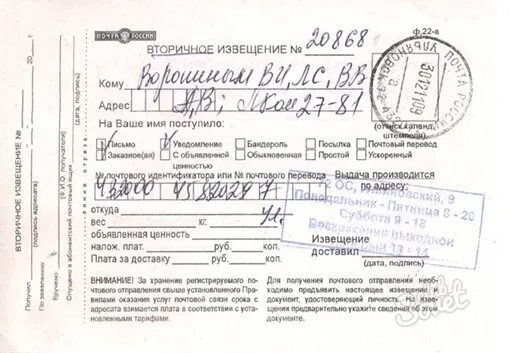 ПОЧТА РОССИИ
ф.22-в
ВТОРИЧНОЕ ИЗВЕЩЕНИЕ № 20868
Кому Ворониным ВИ, ЛС, ВВ
Адрес АВ; 27-81
(оттиск календ. штемпеля)
На Ваше имя поступило:
Письмо Уведомление Бандероль Посылка Почтовый перевод
Заказной(ая) С объявленной ценностью Обыкновенное Простой Ускоренный
№ почтового идентификатора или № почтового перевода
432000 45 82029 7
Выдача производится по адресу:
2 ОС, 9
Понедельник - Пятница 8 - 20
Суббота 9 - 18
Воскресение выходной
13 - 14
откуда Ул.
вес кг.
объявленная ценность
налож. плат. руб. коп.
Плата за доставку руб. коп.
Извещение доставил
(дата, подпись)
ВНИМАНИЕ! За хранение регистрируемого почтового отправления свыше установленного Правилами оказания услуг почтовой связи срока с адресата взимается плата в соответствии с установленными тарифами.
Для получения почтового отправления необходимо предъявить настоящее извещение и документ, удостоверяющий личность. На извещении предварительно укажите сведения об этом документе.
ВТОРИЧНОЕ ИЗВЕЩЕНИЕ №
Получил 20 г.
(подпись адресата)
По заявлению
(дата, подпись)
Вручено
(Ф.И.О. получателя)
Опущено в абонентский почтовый ящик
(дата, подпись)
линия отреза
ПОЧТА РОССИИ
УЛЬЯНОВСК
30121109